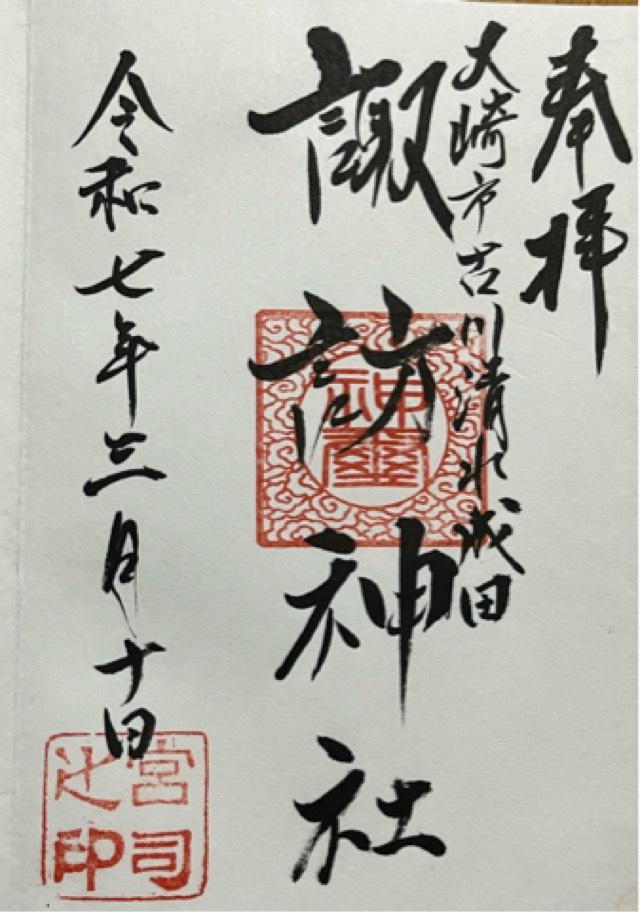 奉拝
大崎市古川清水成田
諏訪神社
神璽
令和七年三月十日
宮司之印